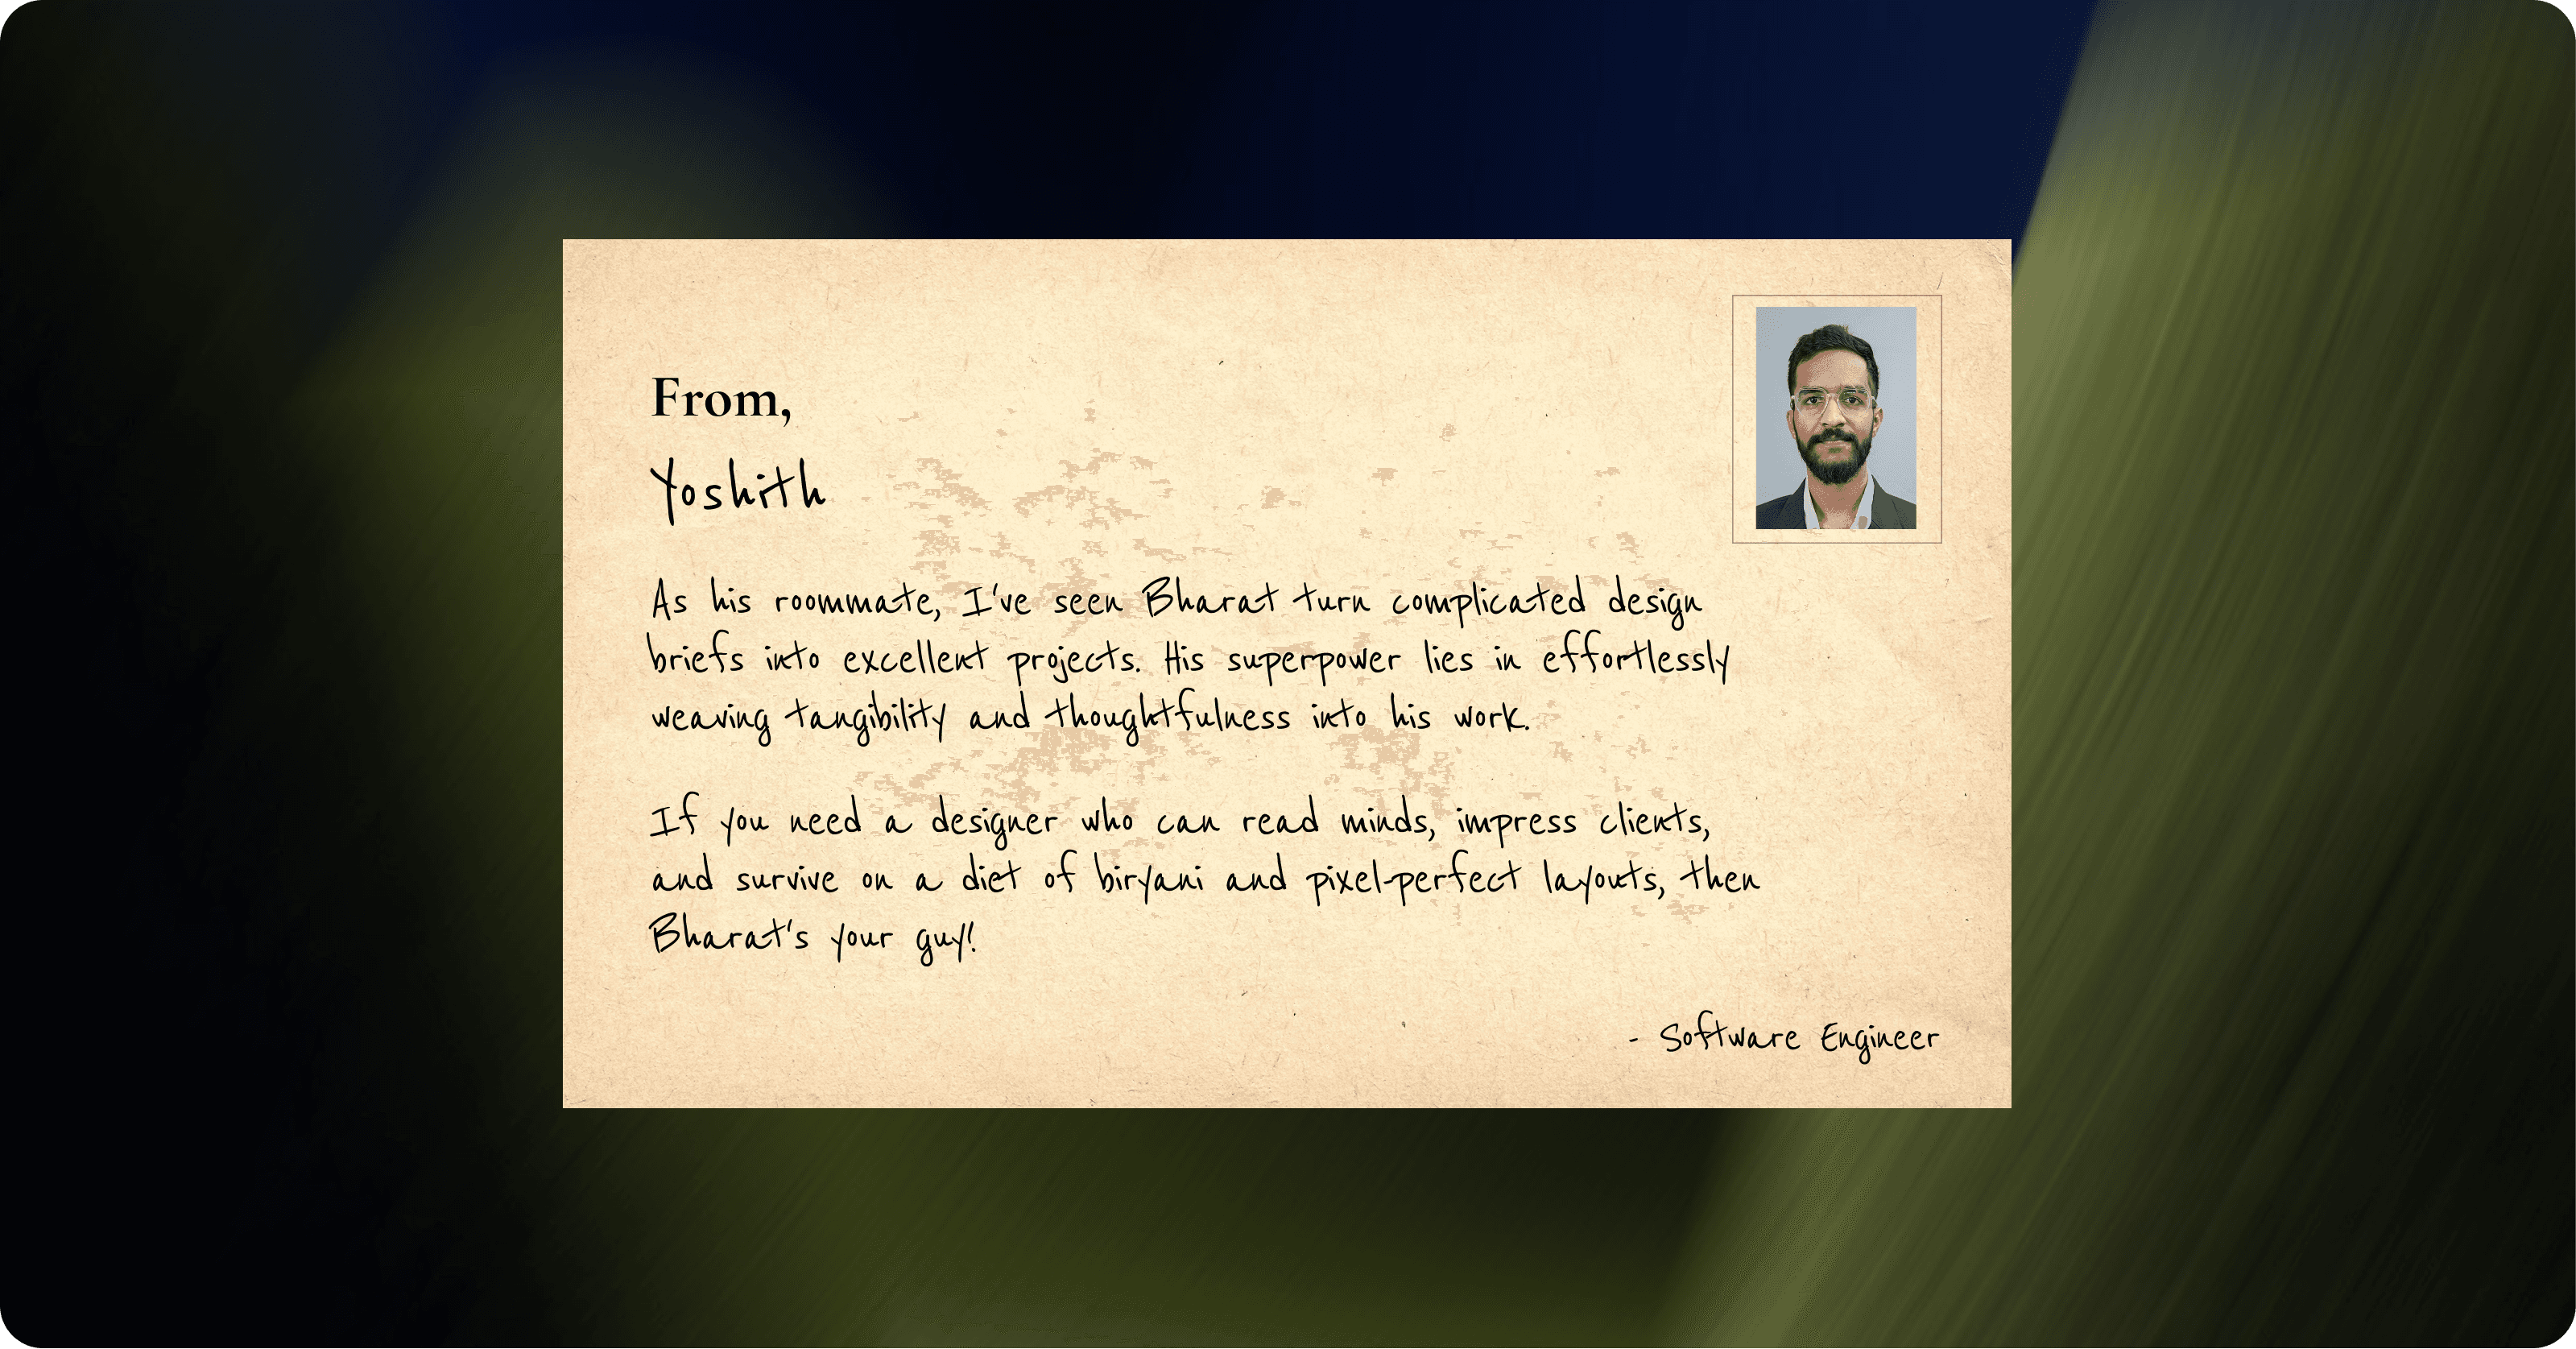 From,
Yoshith
As his roommate, I've seen Bharat turn complicated design
briefs into excellent projects. His superpower lies in effortlessly
weaving tangibility and thoughtfulness into his work.
If you need a designer who can read minds, impress clients,
and survive on a diet of biryani and pixel-perfect layouts, then
Bharat's your guy!
- Software Engineer